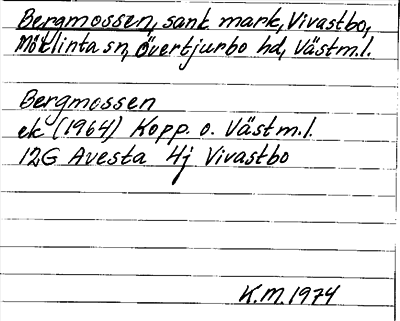 Bergmossen, sank mark, Vivastbo,
Möklinta sn, Övertjurbo hd, Västm.l.
Bergmossen
ek (1964) Kopp. o. Västm.l.
12G Avesta 4j Vivastbo
K.M. 1974